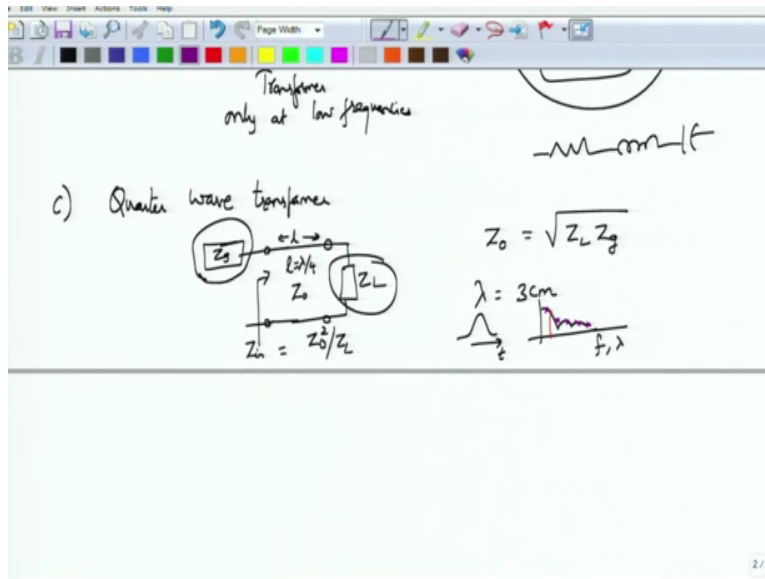 Edit View Insert Actions Tools Help
Page Width
Transformer
only at low frequencies
c) Quarter wave transformer
Zg
l
l=λ/4
Z₀
ZL
Zin = Z₀²/ZL
Z₀ = √ZL Zg
λ = 3cm
t
f, λ
2/